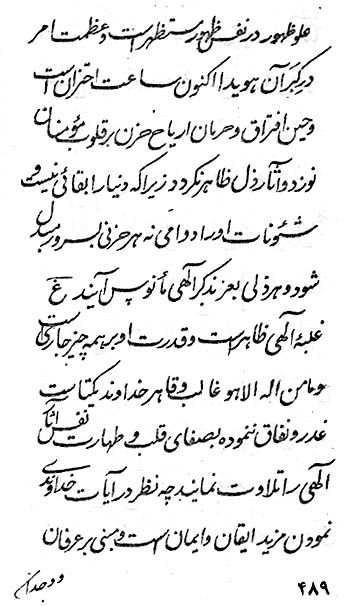 علو ظهور در نفس ظهور مستظهر است و عظمت امر
در کبر آن هویدا اکنون ساعت احتزان است
و حین افتراق و حرمان اریاح حزن بر قلوب مؤمنان
نوزد و آثار ذل ظاهر نگردد زیرا که دنیا را بقائی نیست و
شئونات او را دوامی نه هر حزنی بسرور مبدل
شود و هر ذلی بعز بذکر الهی مأنوس آیند
غلبهٔ الهی ظاهر است و قدرت او بر همه چیز جاری است
و ما من اله الا هو غالب و قاهر خداوند یکتاست
غدر و نفاق ننموده بصفای قلب و طهارت نفس آیات
الهی را تلاوت نمایند چه نظر در آیات خداوندی
نمودن مزید ایقان و ایمان است و مبنی بر عرفان
و وجدان
۴۸۹